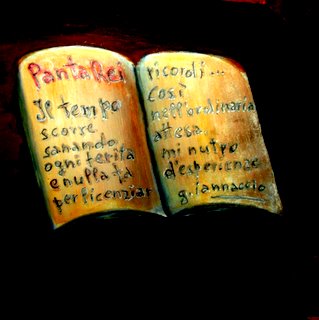 Panta Rei
Il tempo
scorse
sanando
ogni ferita
e nulla fa
per licenziar
ricordi...
Così
nell'ordinaria
attesa
mi nutro
d'esperienze
g. iannaccio